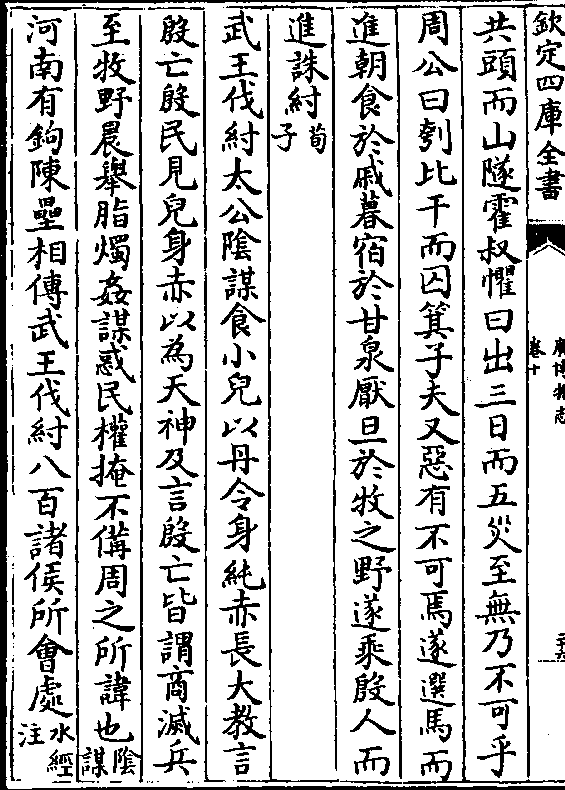 欽定四庫全書
廣博物志
卷十
共頭而山隧霍叔懼曰出三日而五災至無乃不可乎
周公曰刳比干而囚箕子夫又惡有不可焉遂選馬而
進朝食於戚暮宿於甘泉厭旦於牧之野遂乘殷人而
進誅紂荀子
武王伐紂太公陰謀食小兒以丹令身純赤長大教言
殷亡殷民見兒身赤以為天神及言殷亡皆謂商滅兵
至牧野晨舉脂燭姦謀惑民權掩不備周之所諱也陰謀
河南有鉤陳壘相傳武王伐紂八百諸侯所會處水經注